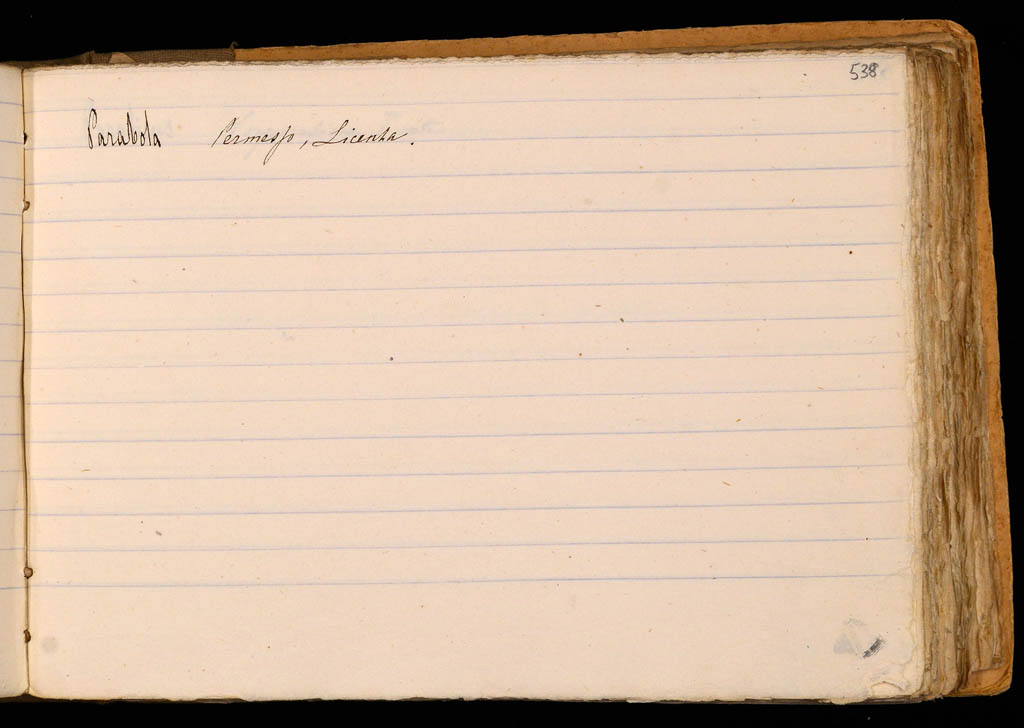 538
Parabola Permesso, Licenza.